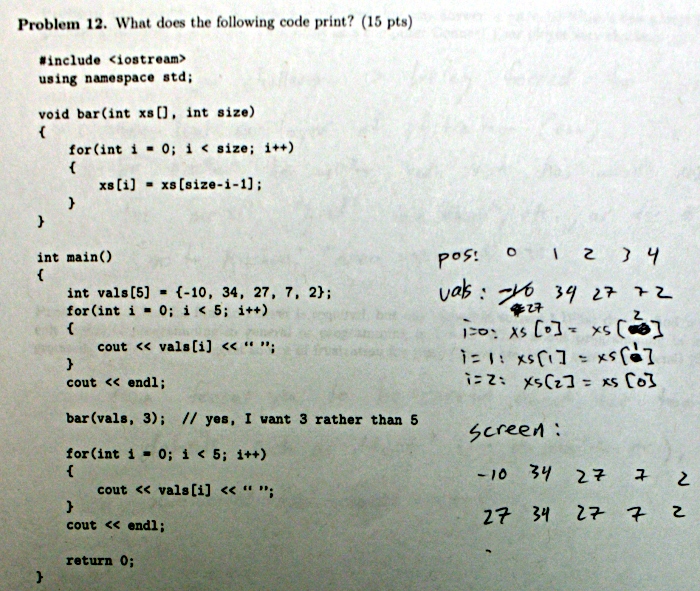 Problem 12. What does the following code print? (15 pts)
#include <iostream>
using namespace std;
void bar(int xs[], int size)
{
for(int i = 0; i < size; i++)
{
xs[i] = xs[size-i-1];
}
}
int main()
{
int vals[5] = {-10, 34, 27, 7, 2};
for(int i = 0; i < 5; i++)
{
cout << vals[i] << " ";
}
cout << endl;
bar(vals, 3); // yes, I want 3 rather than 5
for(int i = 0; i < 5; i++)
{
cout << vals[i] << " ";
}
cout << endl;
return 0;
}
pos: 0 1 2 3 4
vals: -10 34 27 7 2
27
i=0: xs[0] = xs[2]
i=1: xs[1] = xs[1]
i=2: xs[2] = xs[0]
screen:
-10 34 27 7 2
27 34 27 7 2